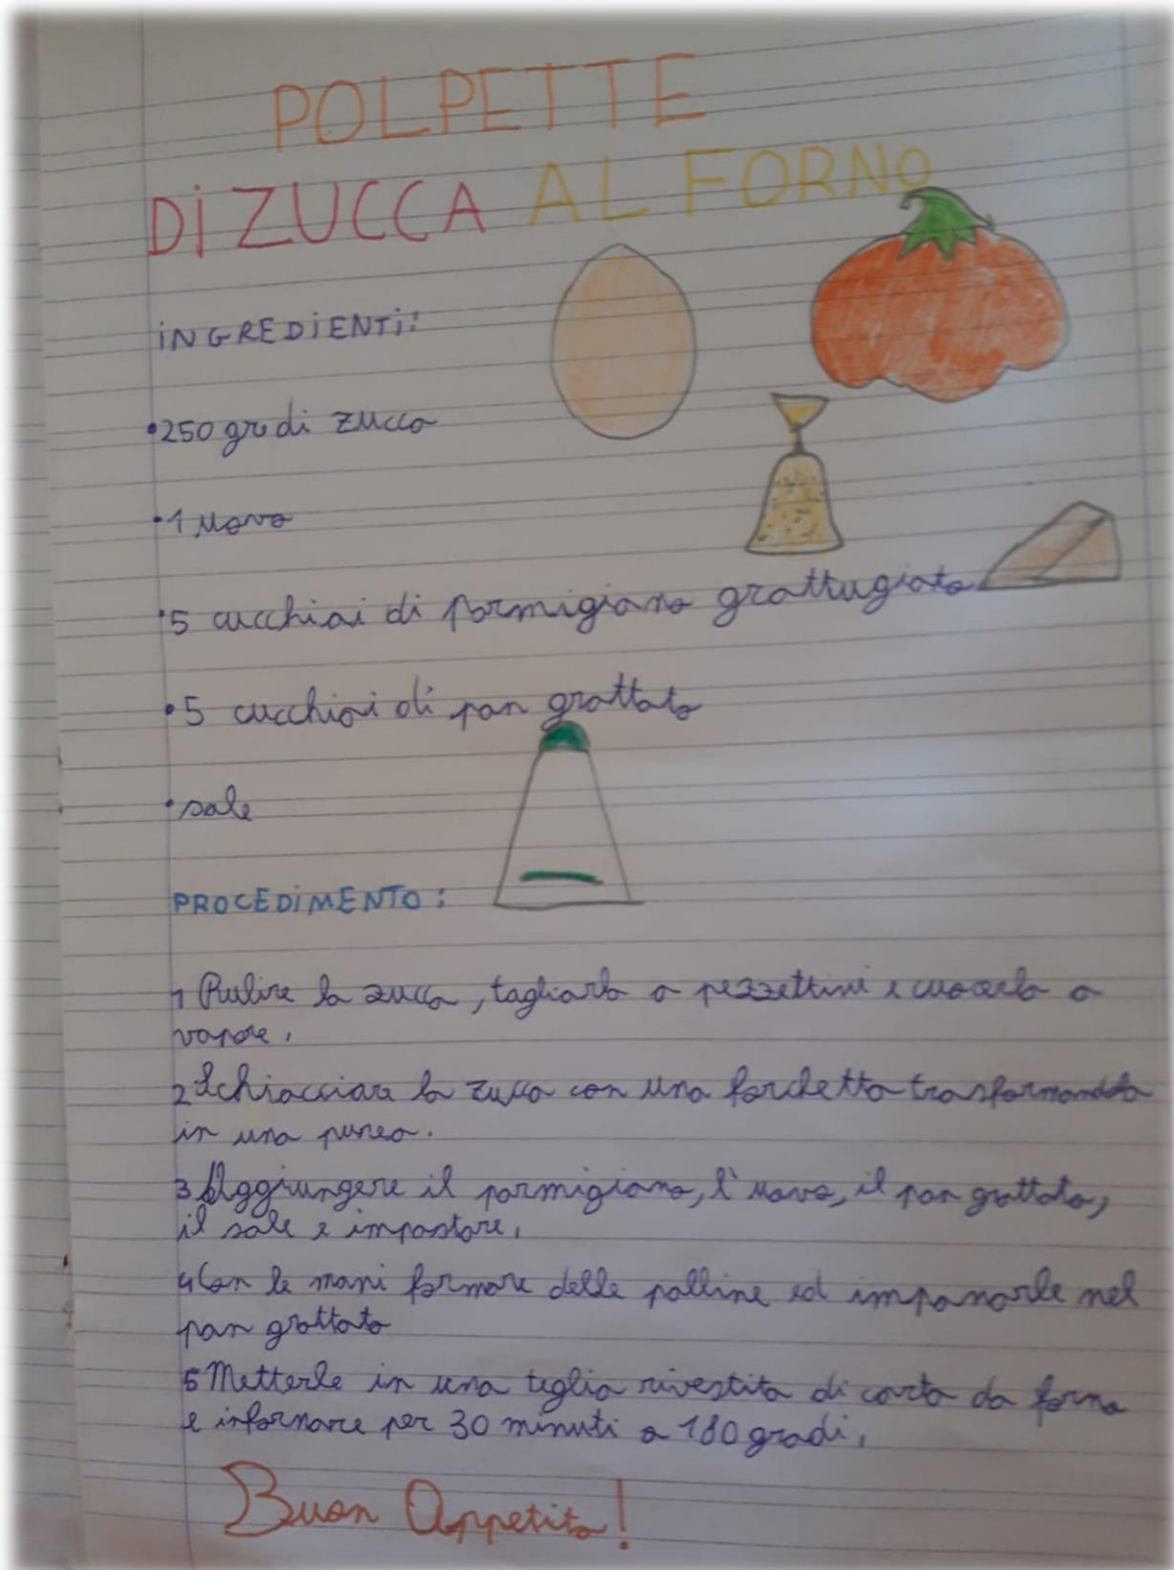 POLPETTE
DI ZUCCA AL FORNO
INGREDIENTI:
•250 gr di zucca
•1 uovo
•5 cucchiai di parmigiano grattugiato
•5 cucchiai di pan grattato
•sale
PROCEDIMENTO:
1 Pulire la zucca, tagliarla a pezzettini e cuocerla a
vapore.
2 Schiacciare la zucca con una forchetta trasformandola
in una purea.
3 Aggiungere il parmigiano, l'uovo, il pan grattato,
il sale e impastare.
4 Con le mani formare delle palline ed impanarle nel
pan grattato
5 Metterle in una teglia rivestita di carta da forno
e infornare per 30 minuti a 180 gradi.
Buon Appetito!